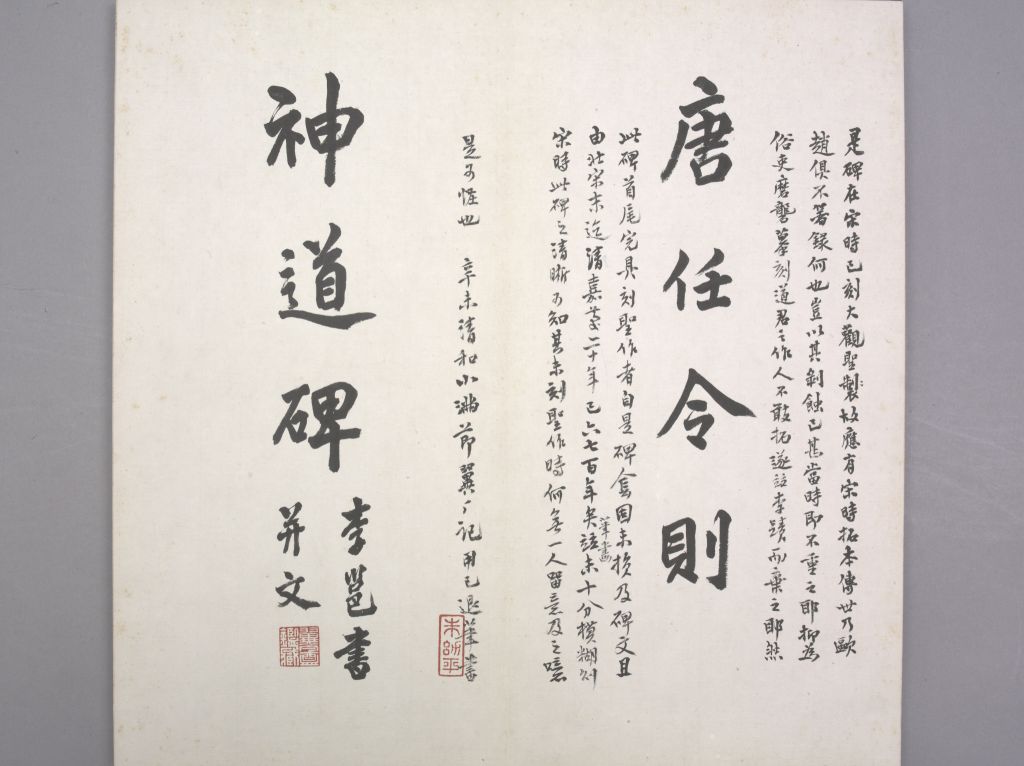 是碑在宋時已刻大觀聖製故應有宋時拓本傳世乃歐
趙俱不著錄何也豈以其剝蝕已甚當時即不重之耶抑爲
俗吏磨礱摹刻道君之作人不敢拓遂竝李蹟而棄之耶然
唐任令則
此碑首尾完具刻聖作者自是碑會因未損及碑文且
由北宋末迄清嘉慶二十年已六七百年矣竝未十分模糊則
筆畫
宋時此碑之清晰可知其未刻聖作時何無一人留意及之噫
是可怪也 辛未清和小滿節翼厂記用已退筆書
朱翊平
神道碑
李邕書
并文